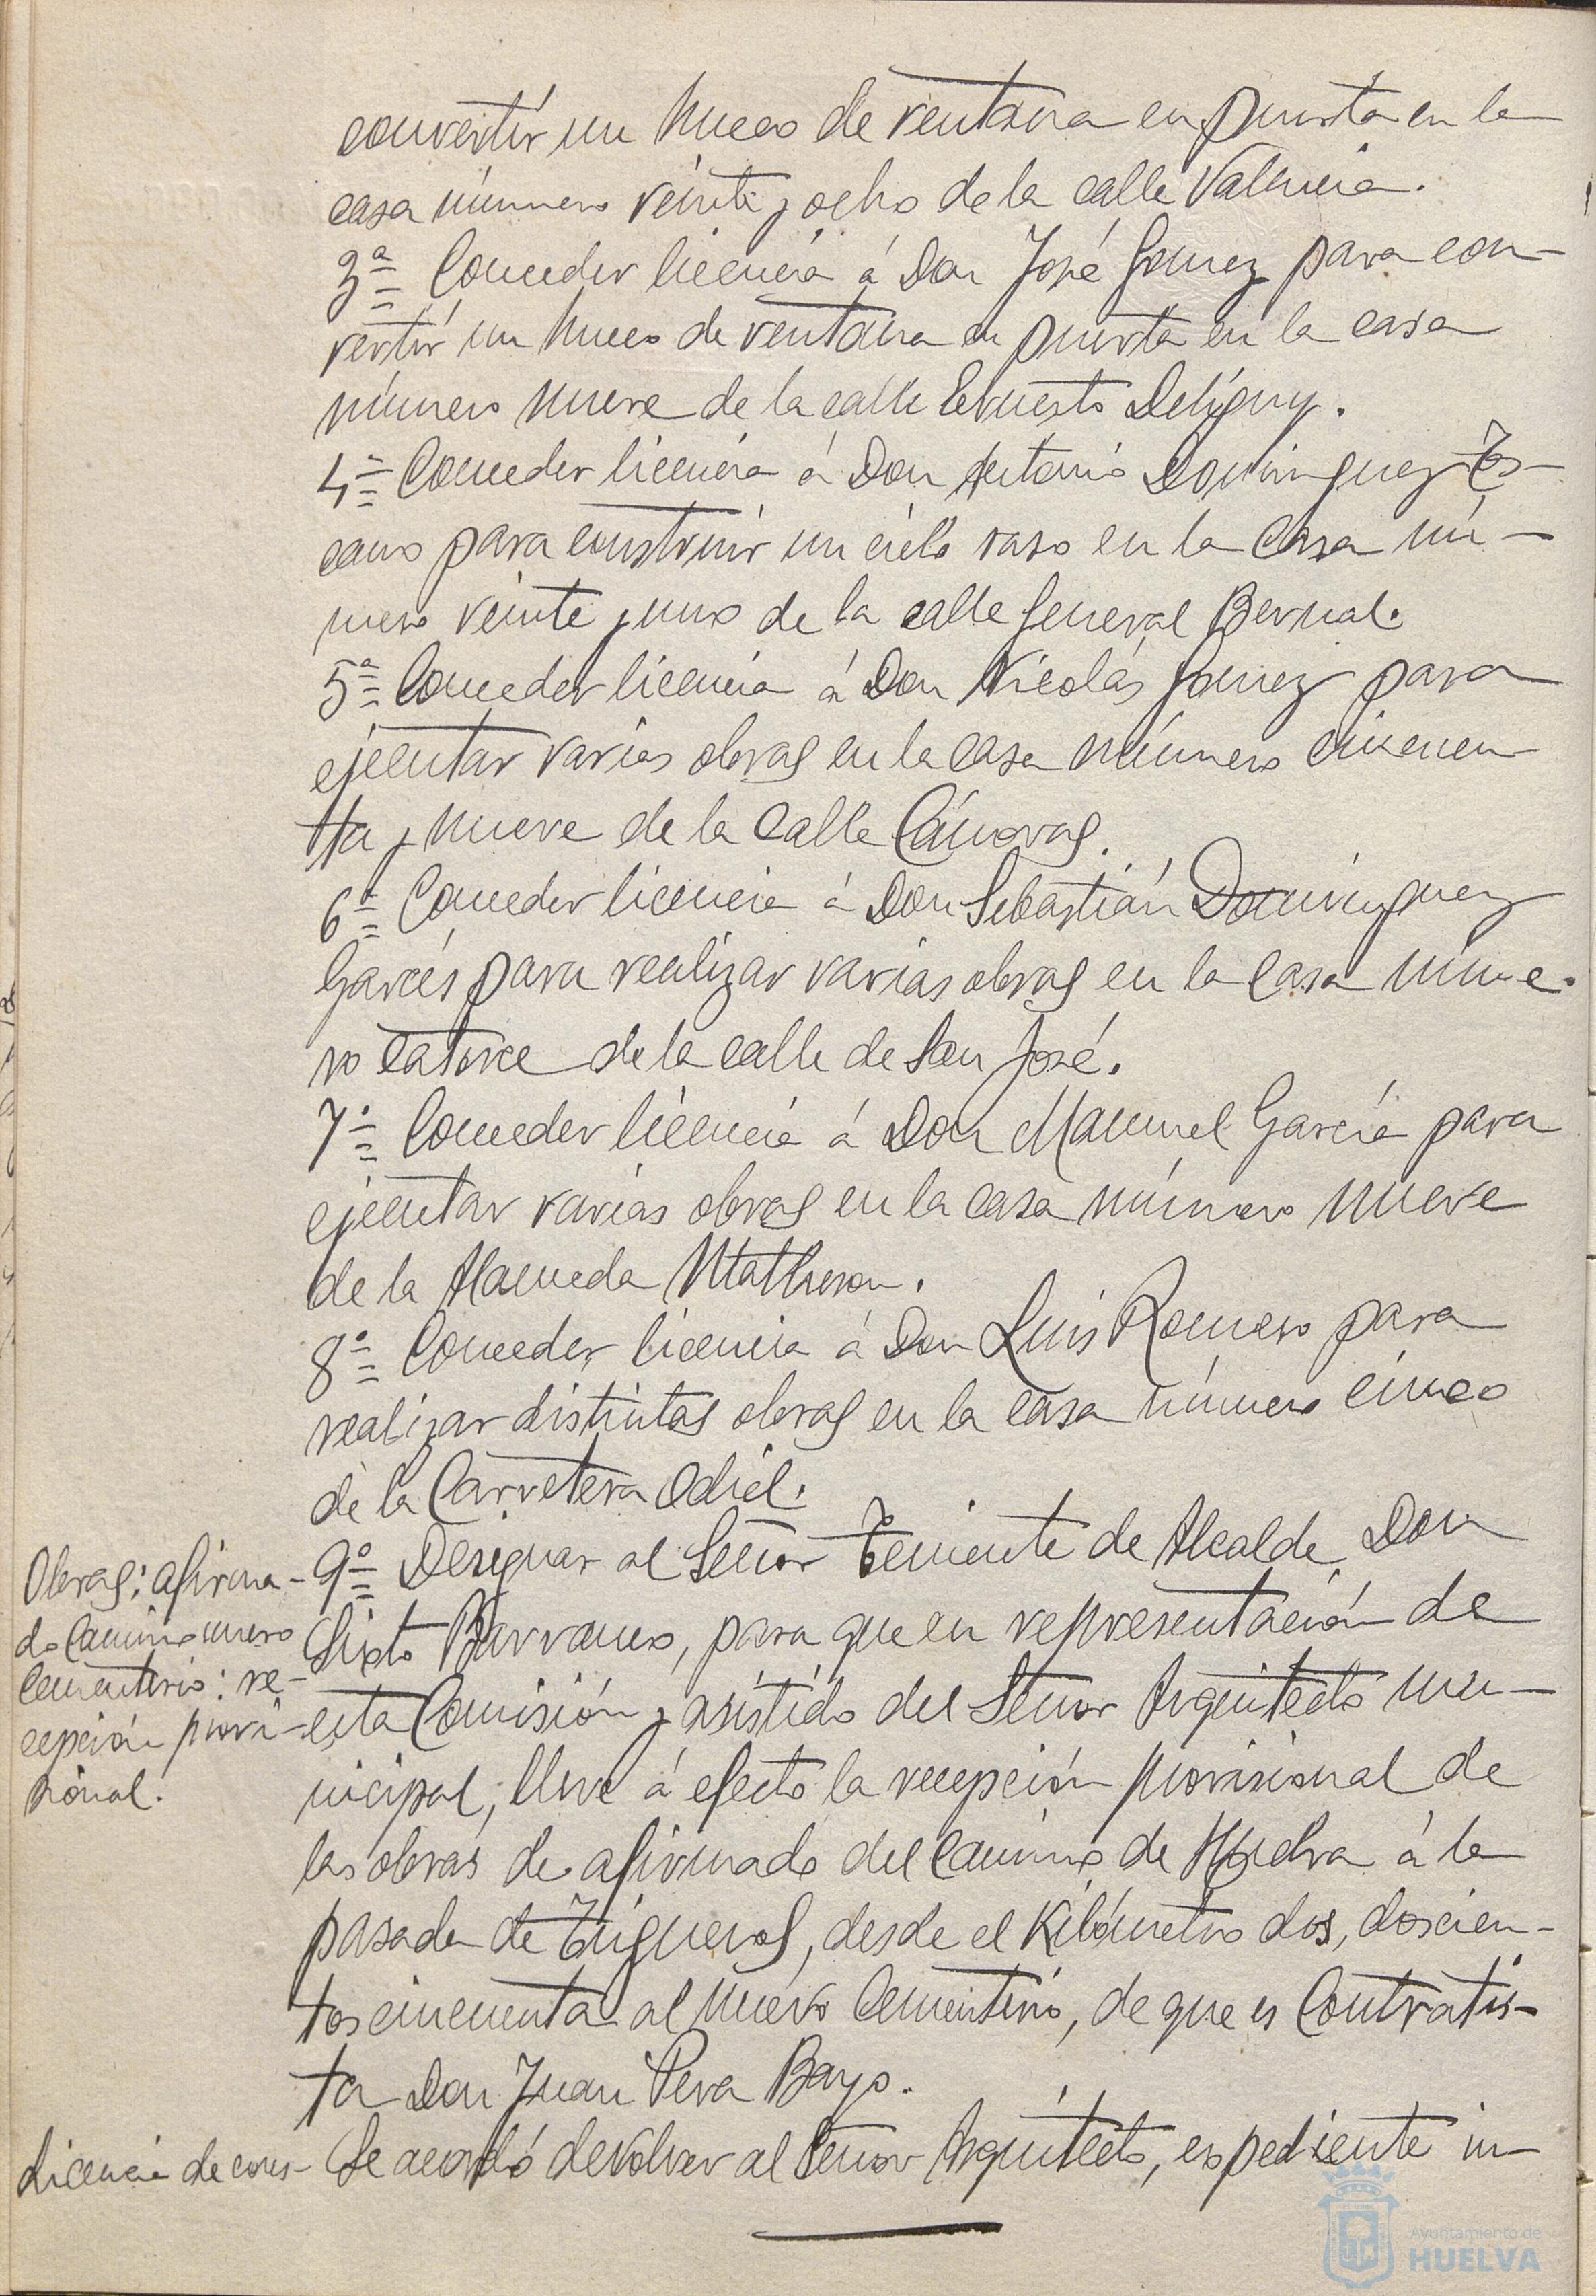 convertir un hueco de ventana en puerta en la
casa número veinte y ocho de la calle Valencia.
3ª Conceder licencia á Don José Gomez para con-
vertir un hueco de ventana en puerta en la casa
número nueve de la calle Ernesto Deligny.
4ª Conceder licencia á Don Antonio Dominguez
cano para construir un cielo raso en la casa nú-
mero veinte y uno de la calle General Bernal.
5ª Conceder licencia á Don Nicolás Gomez para
ejecutar varias obras en la casa número cincuen
ta y nueve de la calle Cánovas.
6ª Conceder licencia á Don Sebastián Dominguez
Garcés para realizar varias obras en la casa núme-
ro catorce de la calle de San José.
7ª Conceder licencia á Don Manuel García para
ejecutar varias obras en la casa número nueve
de la Alameda Matheson.
8ª Conceder licencia á Don Luis Romero para
realizar distintas obras en la casa número cinco
de la Carretera Odiel.
Obras: afirma-
do Camino nuevo
Cementerio: re-
cepción provi-
sional.
9ª Designar al Señor Teniente de Alcalde Don
Sixto Barranco, para que en representación de
esta Comisión y asistido del Señor Arquitecto mu-
nicipal, lleve á efecto la recepción provisional de
las obras de afirmado del Camino de Huelva á la
pasada de Trigueros, desde el Kilómetro dos, doscien-
tos cincuenta al nuevo Cementerio, de que es Contratis-
ta Don Juan Pera Bayo.
Licencia de cons-
Se acordó devolver al Señor Arquitecto, expediente in-
Ayuntamiento de
HUELVA